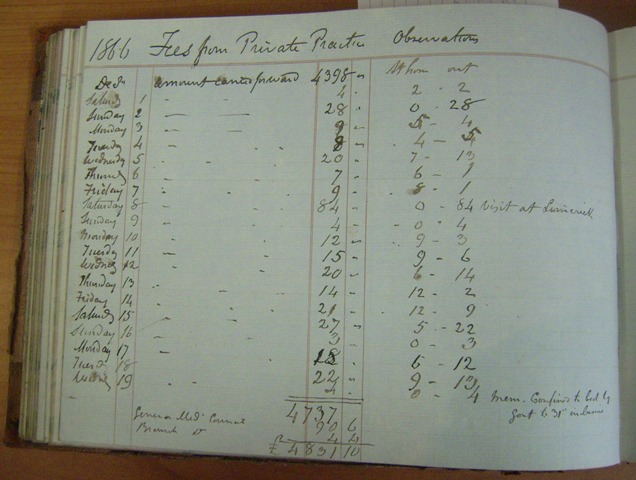 1866 Fees from Private Practice Observations
Decr amount carried forward 4398 " At home out
Saturd 1 4 " 2 - 2
Sunday 2 28 " 0 - 28
Monday 3 9 " 5 - 4
Tuesday 4 " 4 -
Wednesday 5 20 " 7 - 13
Thursd 6 7 " 6 - 1
Friday 7 9 " 8 - 1
Saturday 8 84 " 0 - 84 Visit at Limerick
Sunday 9 4 " 0 - 4
Monday 10 12 " 9 - 3
Tuesday 11 15 " 9 - 6
Wednesy 12 20 " 6 - 14
Thursday 13 14 " 12 - 2
Friday 14 21 " 12 - 9
Saturdy 15 27 " 5 - 22
Sunday 16 3 " 0 - 3
Monday 17 18 " 6 - 12
Tuesd 18 22 " 9 - 13
19 4 " 0 - 4 Mem. Confined to bed by
Gout to 31st
4737
General Medl Council 90 6
Branch Do 4 4
£ 4831 10